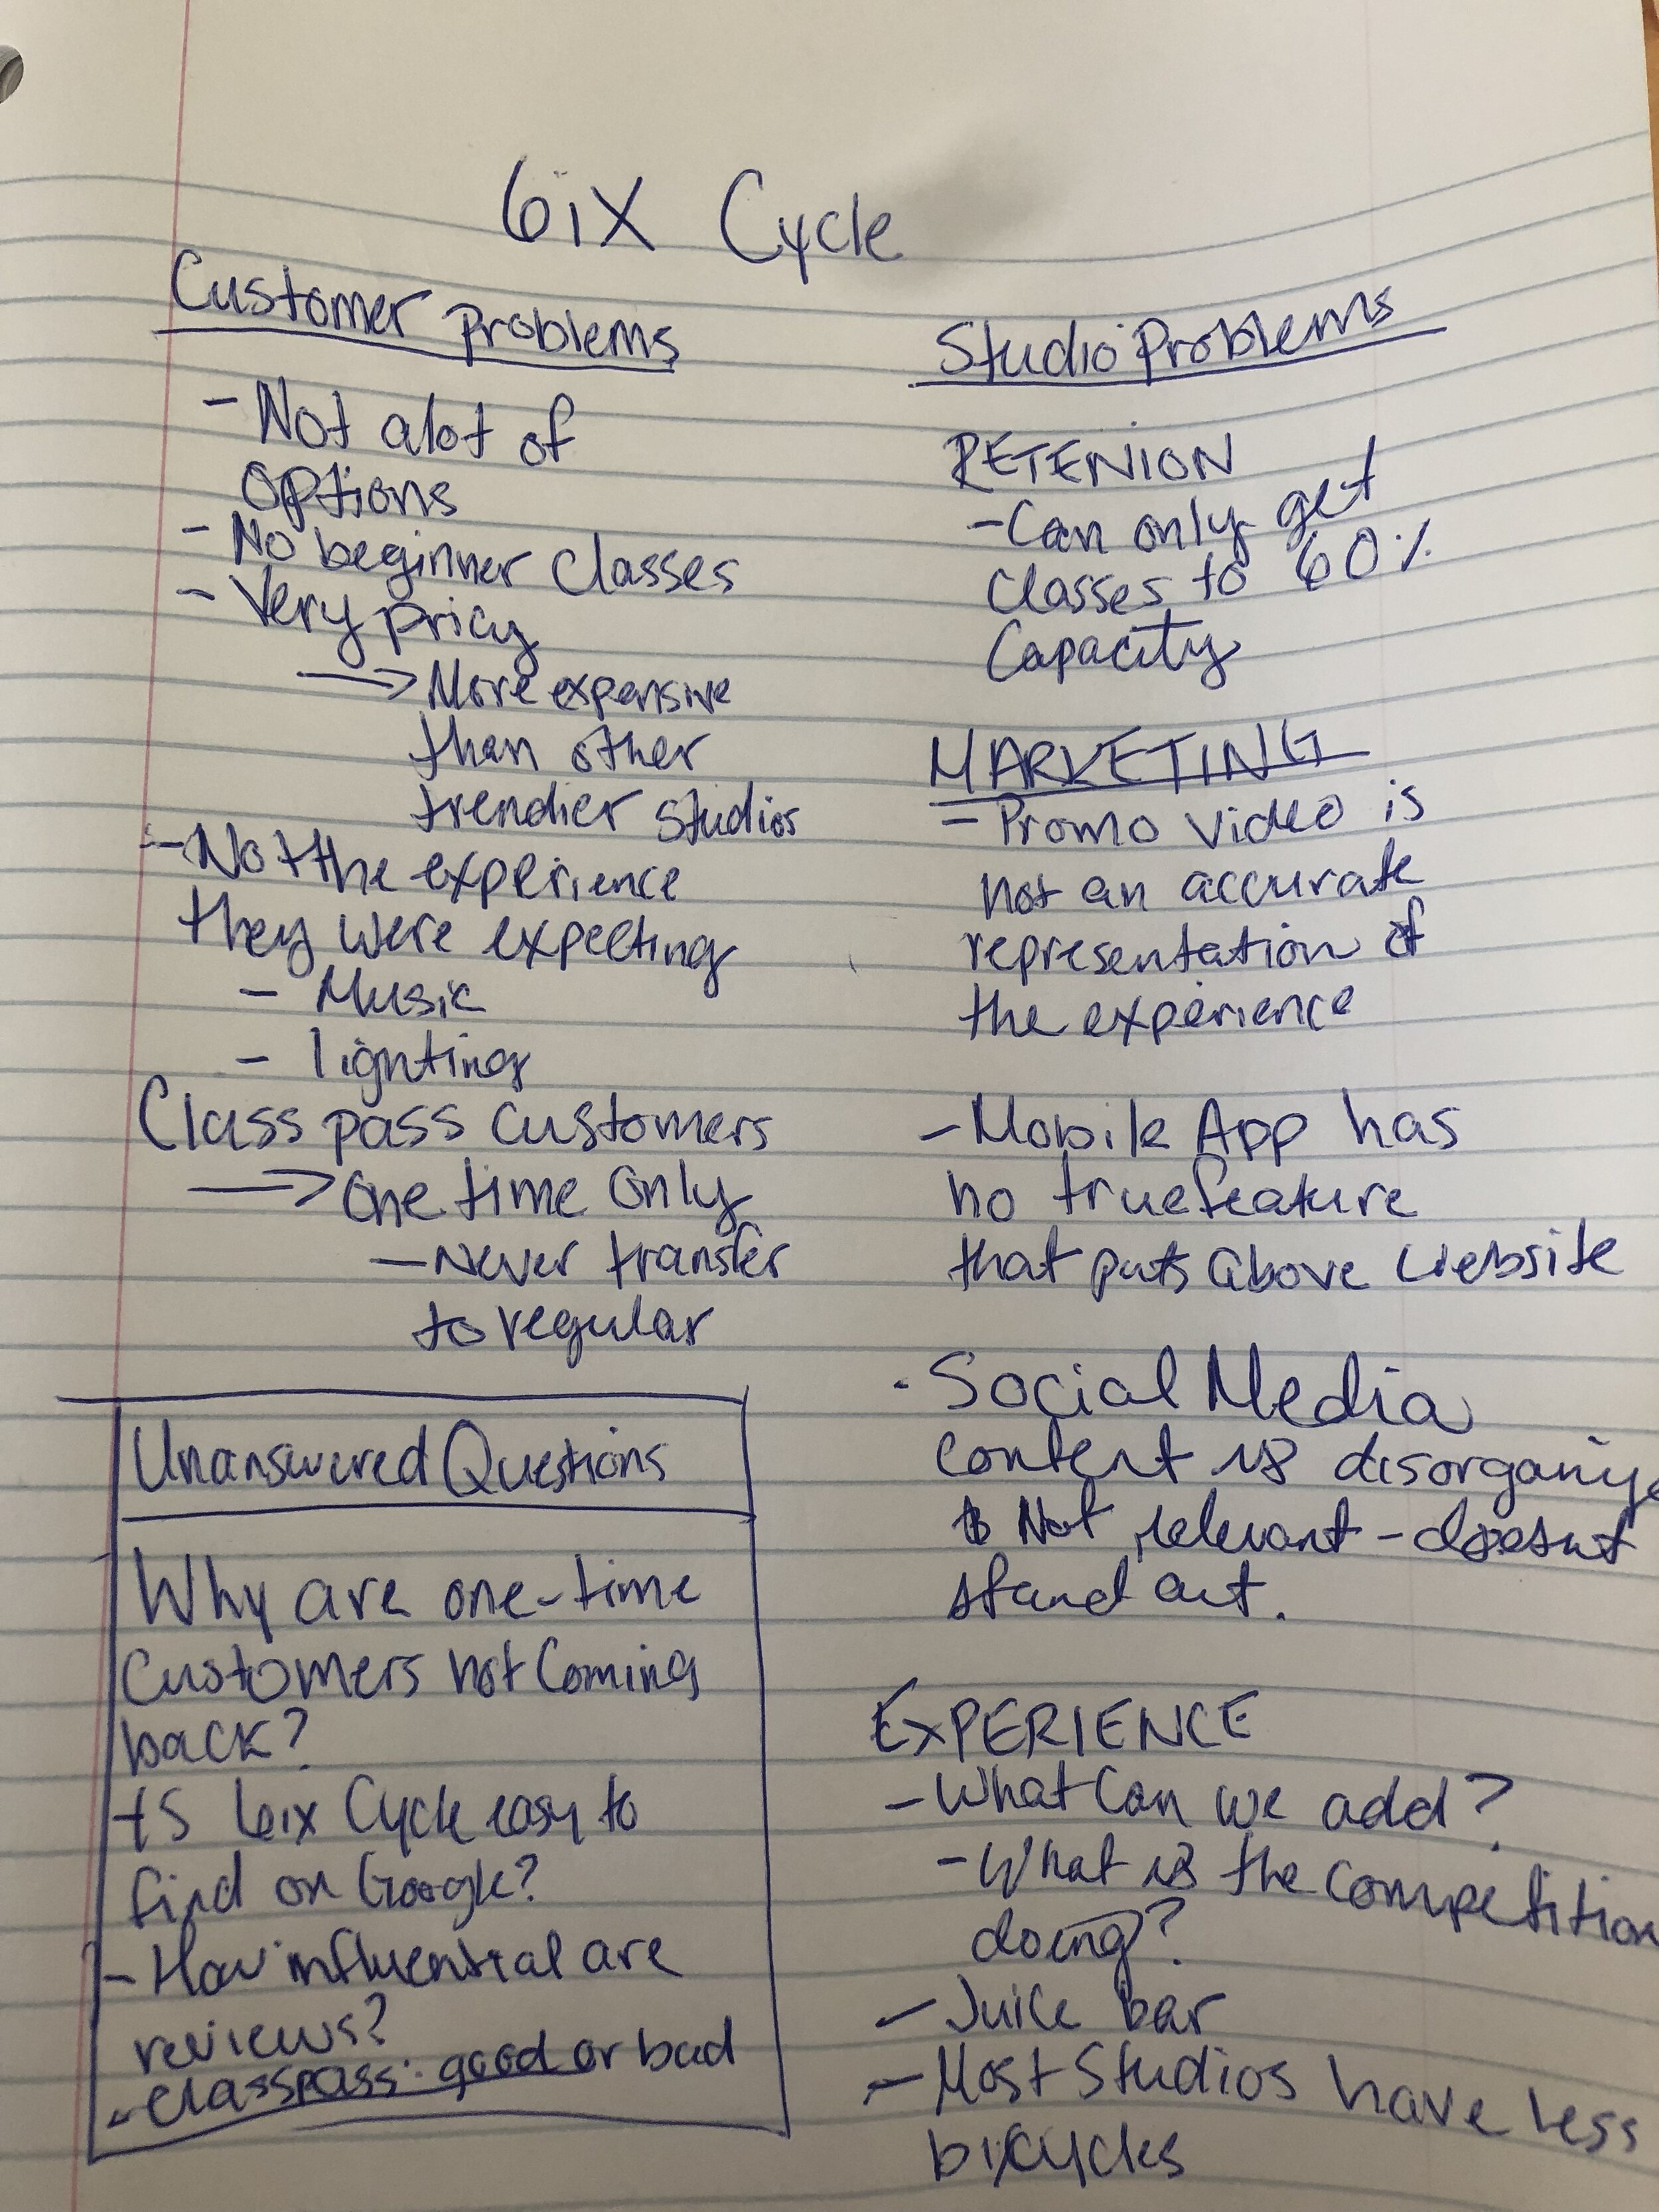 6iX Cycle
Customer Problems
- Not alot of
options
- No beginner classes
- Very pricy
→ More expensive
than other
trendier studios
- Not the experience
they were expecting
- Music
- lighting
Class pass customers
→ one time only
- Never transfer
to regular
Unanswered Questions
Why are one-time
customers not coming
back?
Is 6ix Cycle easy to
find on Google?
- How influential are
reviews?
- Classpass: good or bad
Studio Problems
RETENION
- Can only get
classes to 60%
capacity
MARKETING
- Promo video is
not an accurate
representation of
the experience
- Mobile App has
no true feature
that puts above website
· Social Media
content is disorganize
& Not relevant - doesnt
stand out.
EXPERIENCE
- What can we add?
- What is the competition
doing?
- Juice bar
- Most Studios have less
bicycles